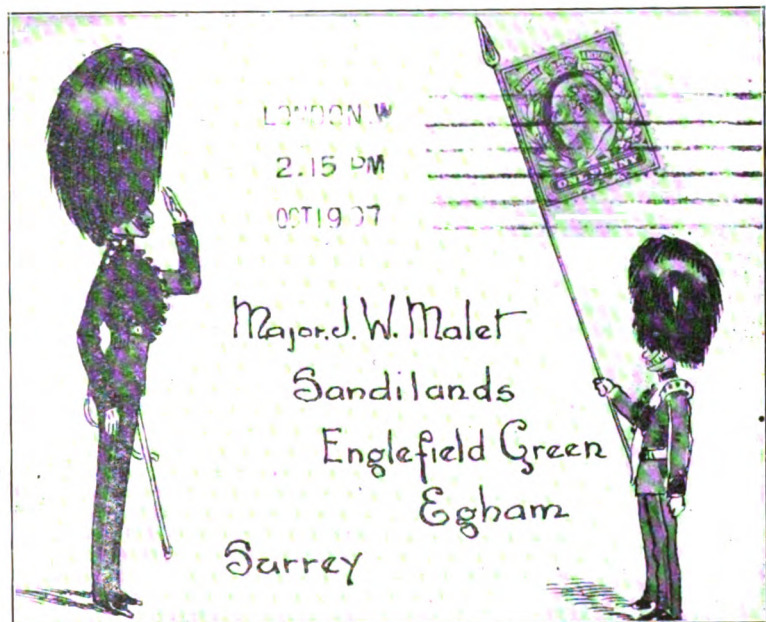 LONDON.W
2.15 PM
OCT 19 07
POSTAGE & REVENUE
ONE PENNY
Major. J. W. Malet
Sandilands
Englefield Green
Egham
Surrey